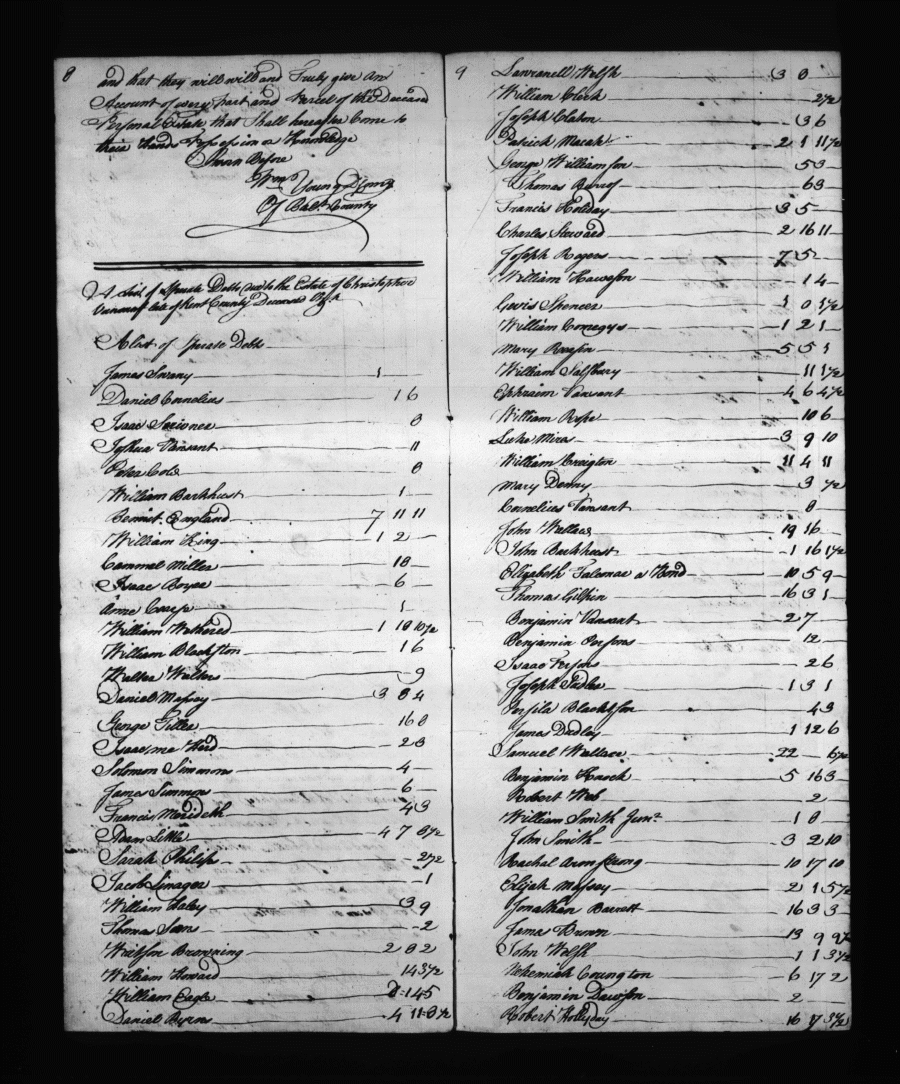 8
and that they will will and Truly give An
Account of every part and Parcel of the Deceased
Personal Estate that Shall hereafter Come to
their Hands Possession or Knowledge
Sworn Before
Wm Young Comy
Of Balt County
A List of Sperate Debts due to the Estate of Christopher
Vansant late of Kent County Deceased
A List of Sperate Debts
James Swany 1
Daniel Cornelius 1 6
Isaac 8
Joshua Vansant 11
Peter Cole 8
William Barkhust 1
Bennit England 7 11 11
William King 1 2
Cammel Miller 18
Isaac Boyce 6
Anne 1
William Wethered 1 18 10½
William Blackston 1 6
Walter Walters 9
Daniel Massey 3 8 4
George Tiller 16 8
Isaac 2 3
Solomon Simmons 4
James Simmons 6
Francis Merideth 4 3
Adam Little 4 7 8½
Sarah Philip 2½
Jacob Linager 1
William Haley 3 9
Thomas 2
Browning 2 8 2
William Howard 14 3½
William Eagle 2 14 5
Daniel Byrns 4 11 8½
9
Lawranell Welsh 3 8
William Clark 2½
Joseph Claton 3 6
Patrick 2 1 11½
George Williamson 5 3
Thomas 6 3
Francis Holiday 3 5
Charles Steward 2 16 11
Joseph Rogers 7 5
William 1 4
Lewis Spencer 1 0 1½
William Comegys 1 2 1
Mary 5 5 1
William Salsbury 11 1½
Ephraim Vansant 4 6 4½
William 10 6
Luke Miers 3 9 10
William Creighton 11 4 11
Mary Denny 3 ½
Cornelius Vansant 8
John Wallace 19 16
John Barkhurst 1 16 1½
Elizabeth Falconar a Bond 10 5 9
Thomas Gilpin 16 3 1
Benjamin Vansant 2 7
Benjamin Parsons 12
Isaac 2 6
Joseph Sadler 1 3 1
Blackston 4 3
James Dudley 1 12 6
Samuel Wallace 22 6½
Benjamin 5 16 3
Robert Web 2
William Smith Junr 1 8
John Smith 3 2 10
Rachal Armstrong 10 17 10
Elijah Massey 2 1 5½
Jonathan Barrett 16 3 3
James Dunn 13 9 9½
John Welsh 1 1 3½
Nehemiah Covington 6 17 2
Benjamin Dawson 2
Robert Hollyday 16 17 3½